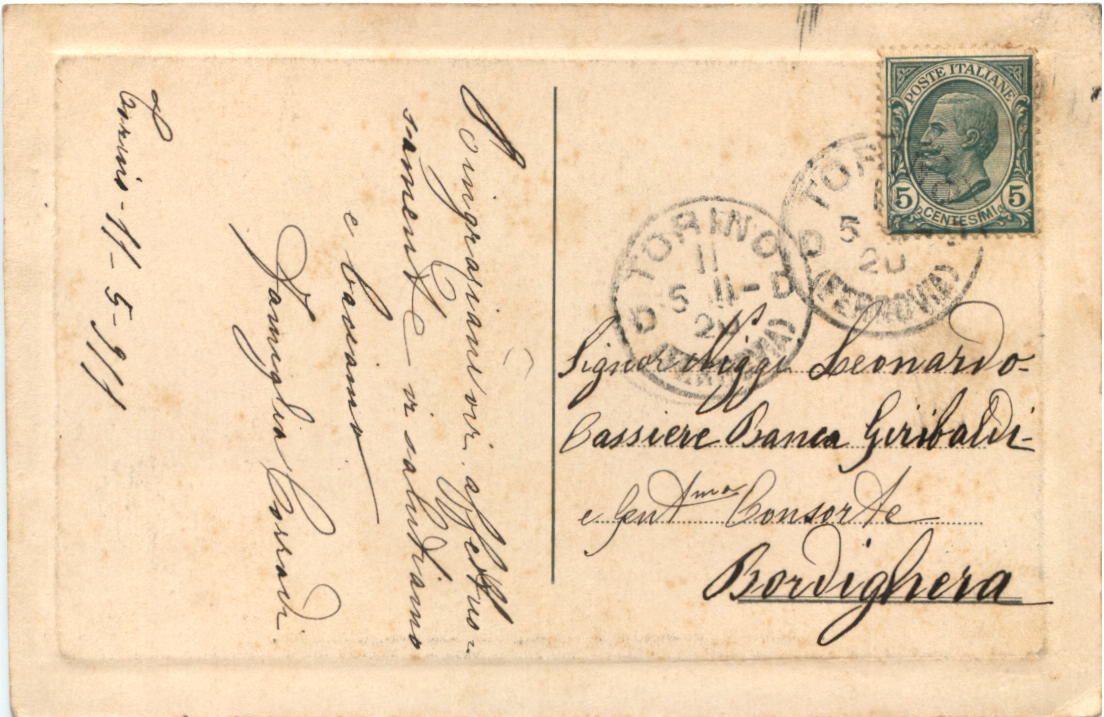 Torino - 11 - 5 - 911
Ringraziandovi affettuo-
samente vi salutiamo
e baciamo
Famiglia Corradi.
POSTE ITALIANE
5 CENTESIMI 5
TORINO
11
5 11
20
(FERROVIA)
TORINO
5
20
(FERROVIA)
Signor Leonardo-
Cassiere Banca Giribaldi-
e Gentma Consorte
Bordighera